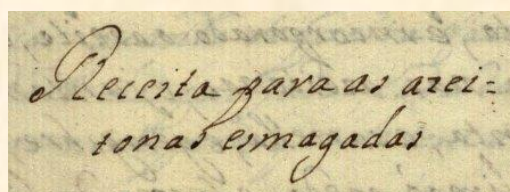 Receita para as azei=
tonas esmagadas